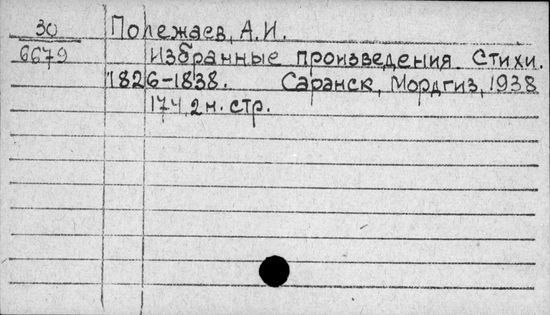 30 Полежаев, А.И.
6679 Избранные произведения. Стихи.
1826-1838. Саранск, Мордгиз, 1938
174, 2 н. стр.